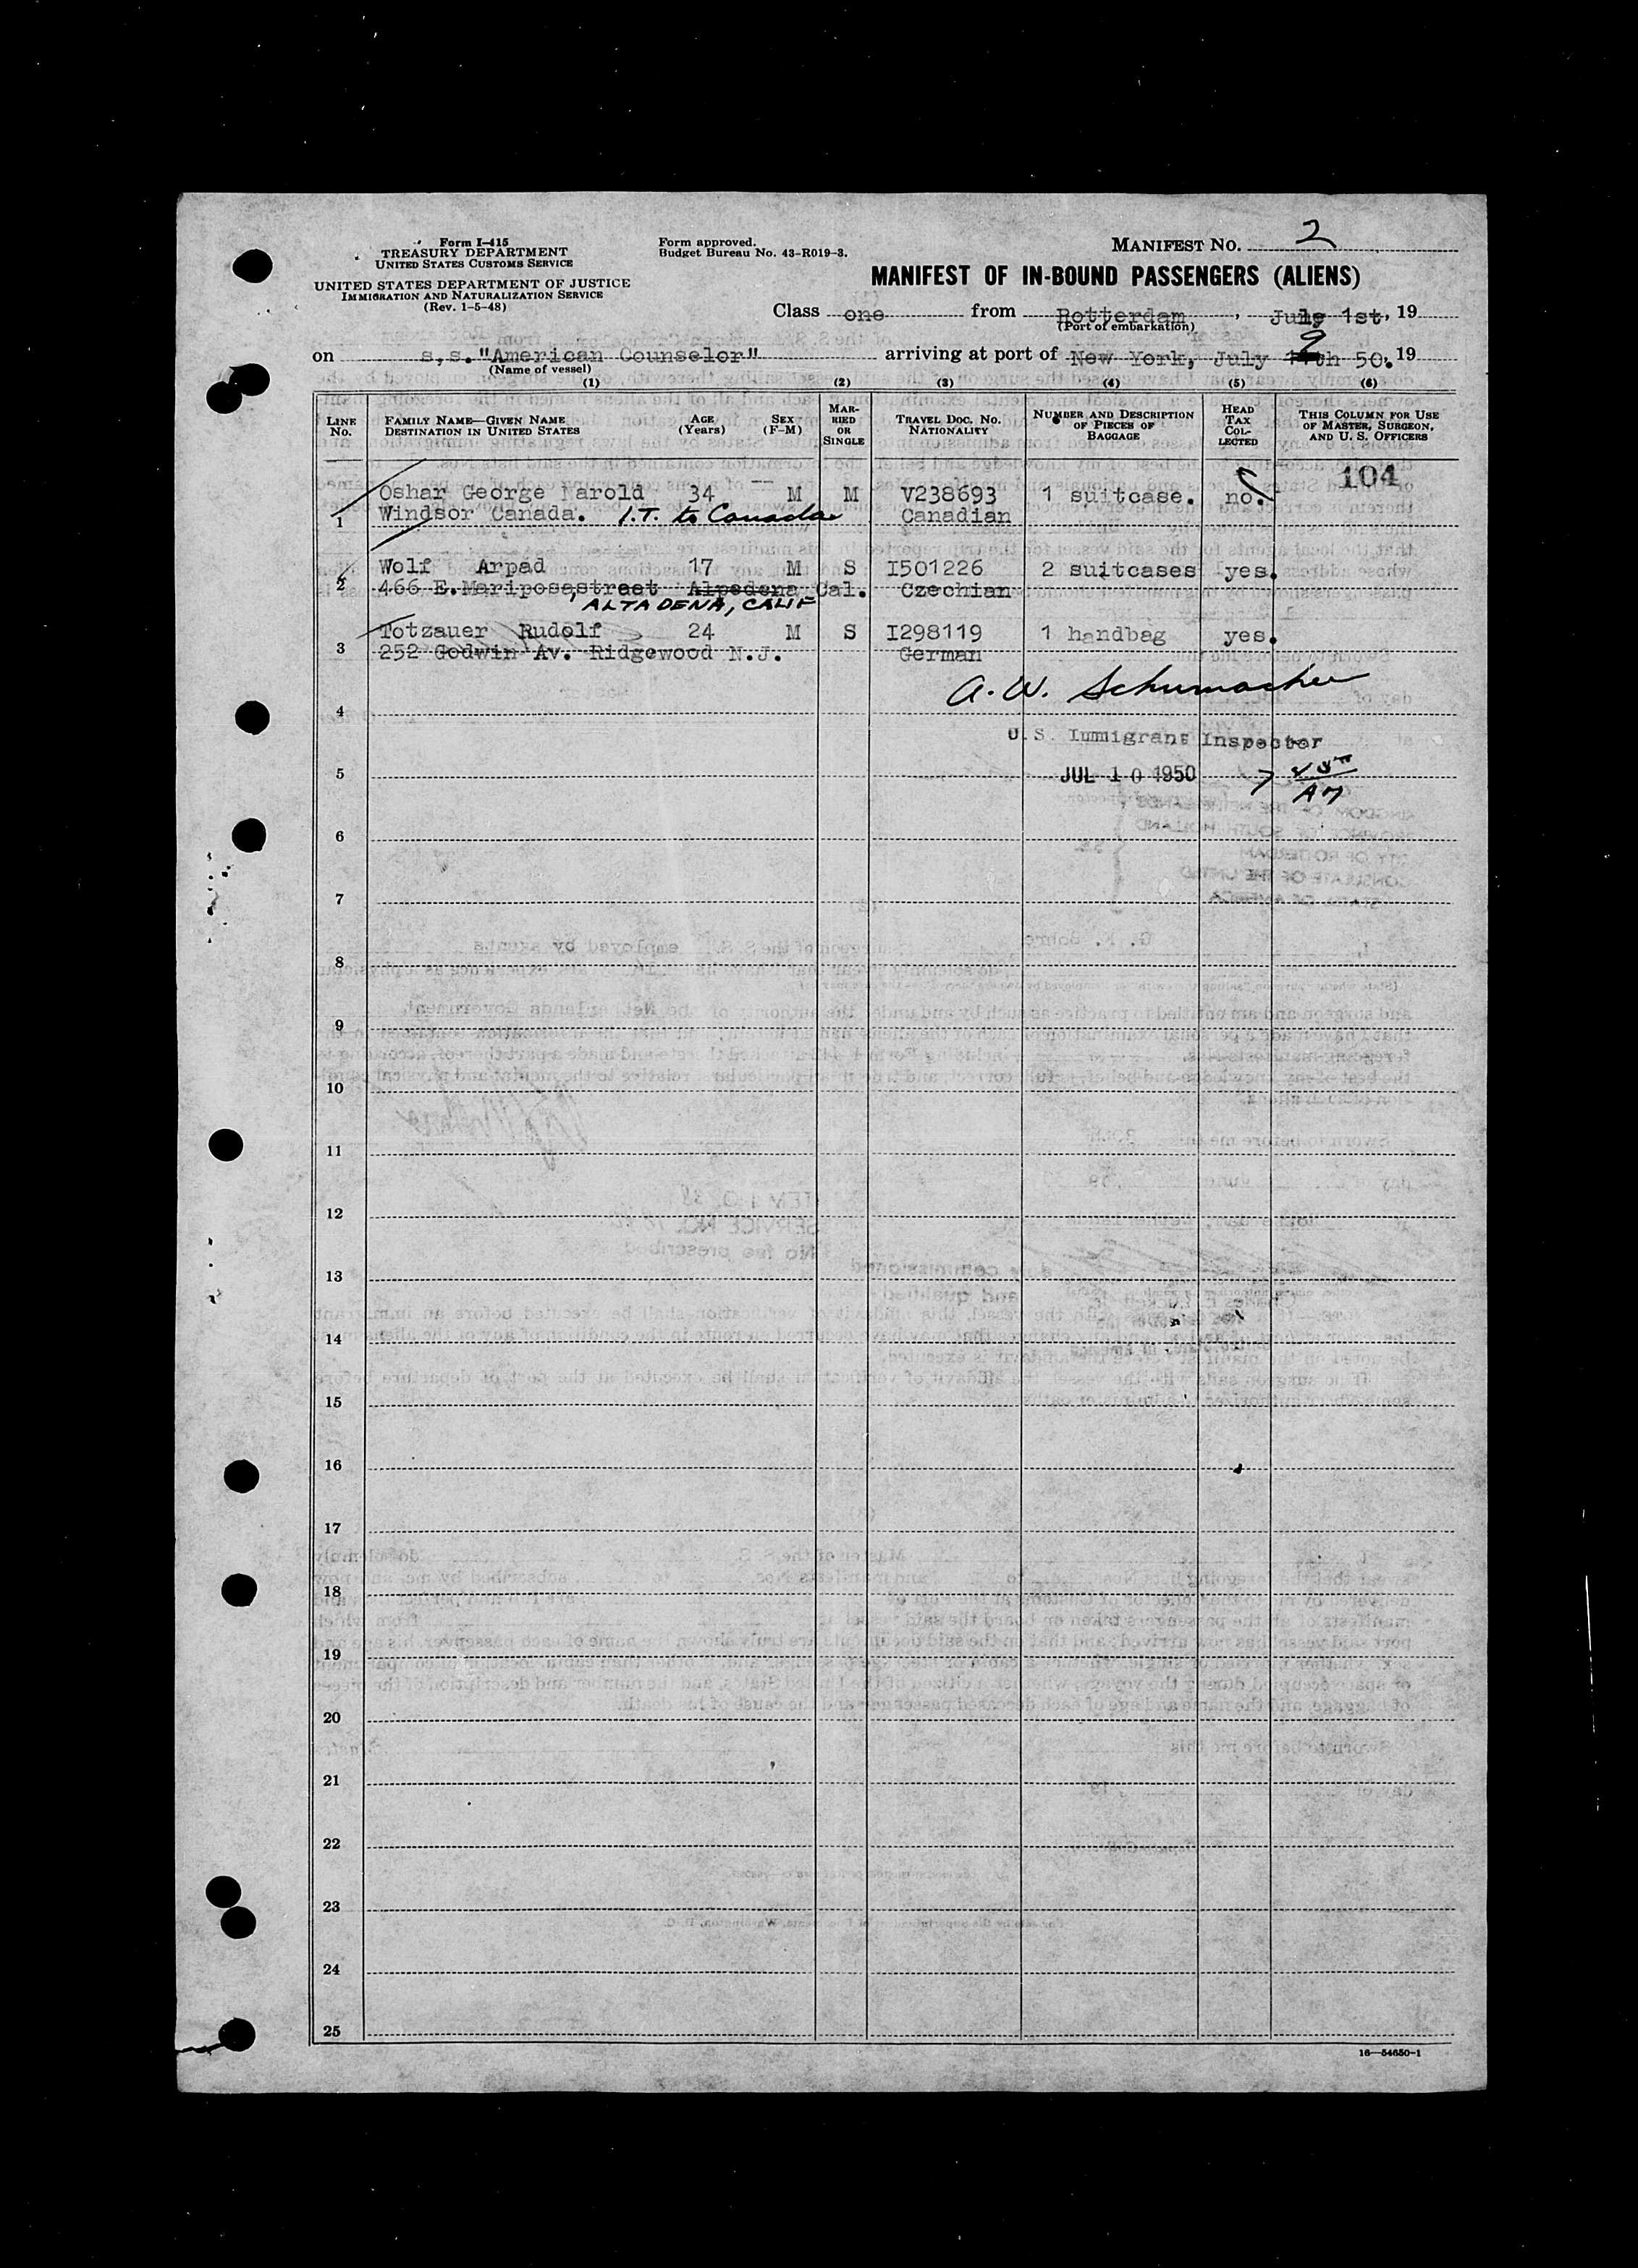 Form I-415
TREASURY DEPARTMENT
UNITED STATES CUSTOMS SERVICE
UNITED STATES DEPARTMENT OF JUSTICE
IMMIGRATION AND NATURALIZATION SERVICE
(Rev. 1-5-48)
Form approved.
Budget Bureau No. 43-R019-3.
MANIFEST NO. 2
MANIFEST OF IN-BOUND PASSENGERS (ALIENS)
Class one from Rotterdam, July 1st, 19
(Port of embarkation)
on s,s."American Counselor" arriving at port of New York, July 9th 50. 19
(Name of vessel)
(1) (2) (3) (4) (5) (6)
LINE NO. FAMILY NAME—GIVEN NAME DESTINATION IN UNITED STATES AGE (Years) SEX (F-M) MARRIED OR SINGLE TRAVEL DOC. NO. NATIONALITY NUMBER AND DESCRIPTION OF PIECES OF BAGGAGE HEAD TAX COLLECTED THIS COLUMN FOR USE OF MASTER, SURGEON, AND U. S. OFFICERS
104
Oshar George Harold 34 M M V238693 1 suitcase. no.
1 Windsor Canada. I.T. to Canada Canadian
Wolf Arpad 17 M S I501226 2 suitcases yes.
2 466 E.Mariposa,street Alpedena Cal. Czechian
ALTADENA, CALIF
Totzauer Rudolf 24 M S I298119 1 handbag yes.
3 252 Godwin Av. Ridgewood N.J. German
A. W. Schumacher
4
U.S. Immigrant Inspector
5 JUL 10 1950
6
7
8
9
10
11
12
13
14
15
16
17
18
19
20
21
22
23
24
25
16—54650-1